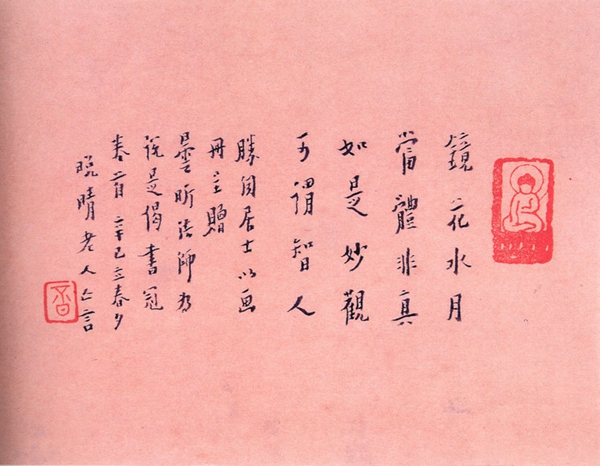 鏡花水月
當體非真
如是妙觀
可謂智人
勝居士以画
冊贈
曇昕法師為
說是偈書冠
卷首 辛巳立春夕
晚晴老人亡言